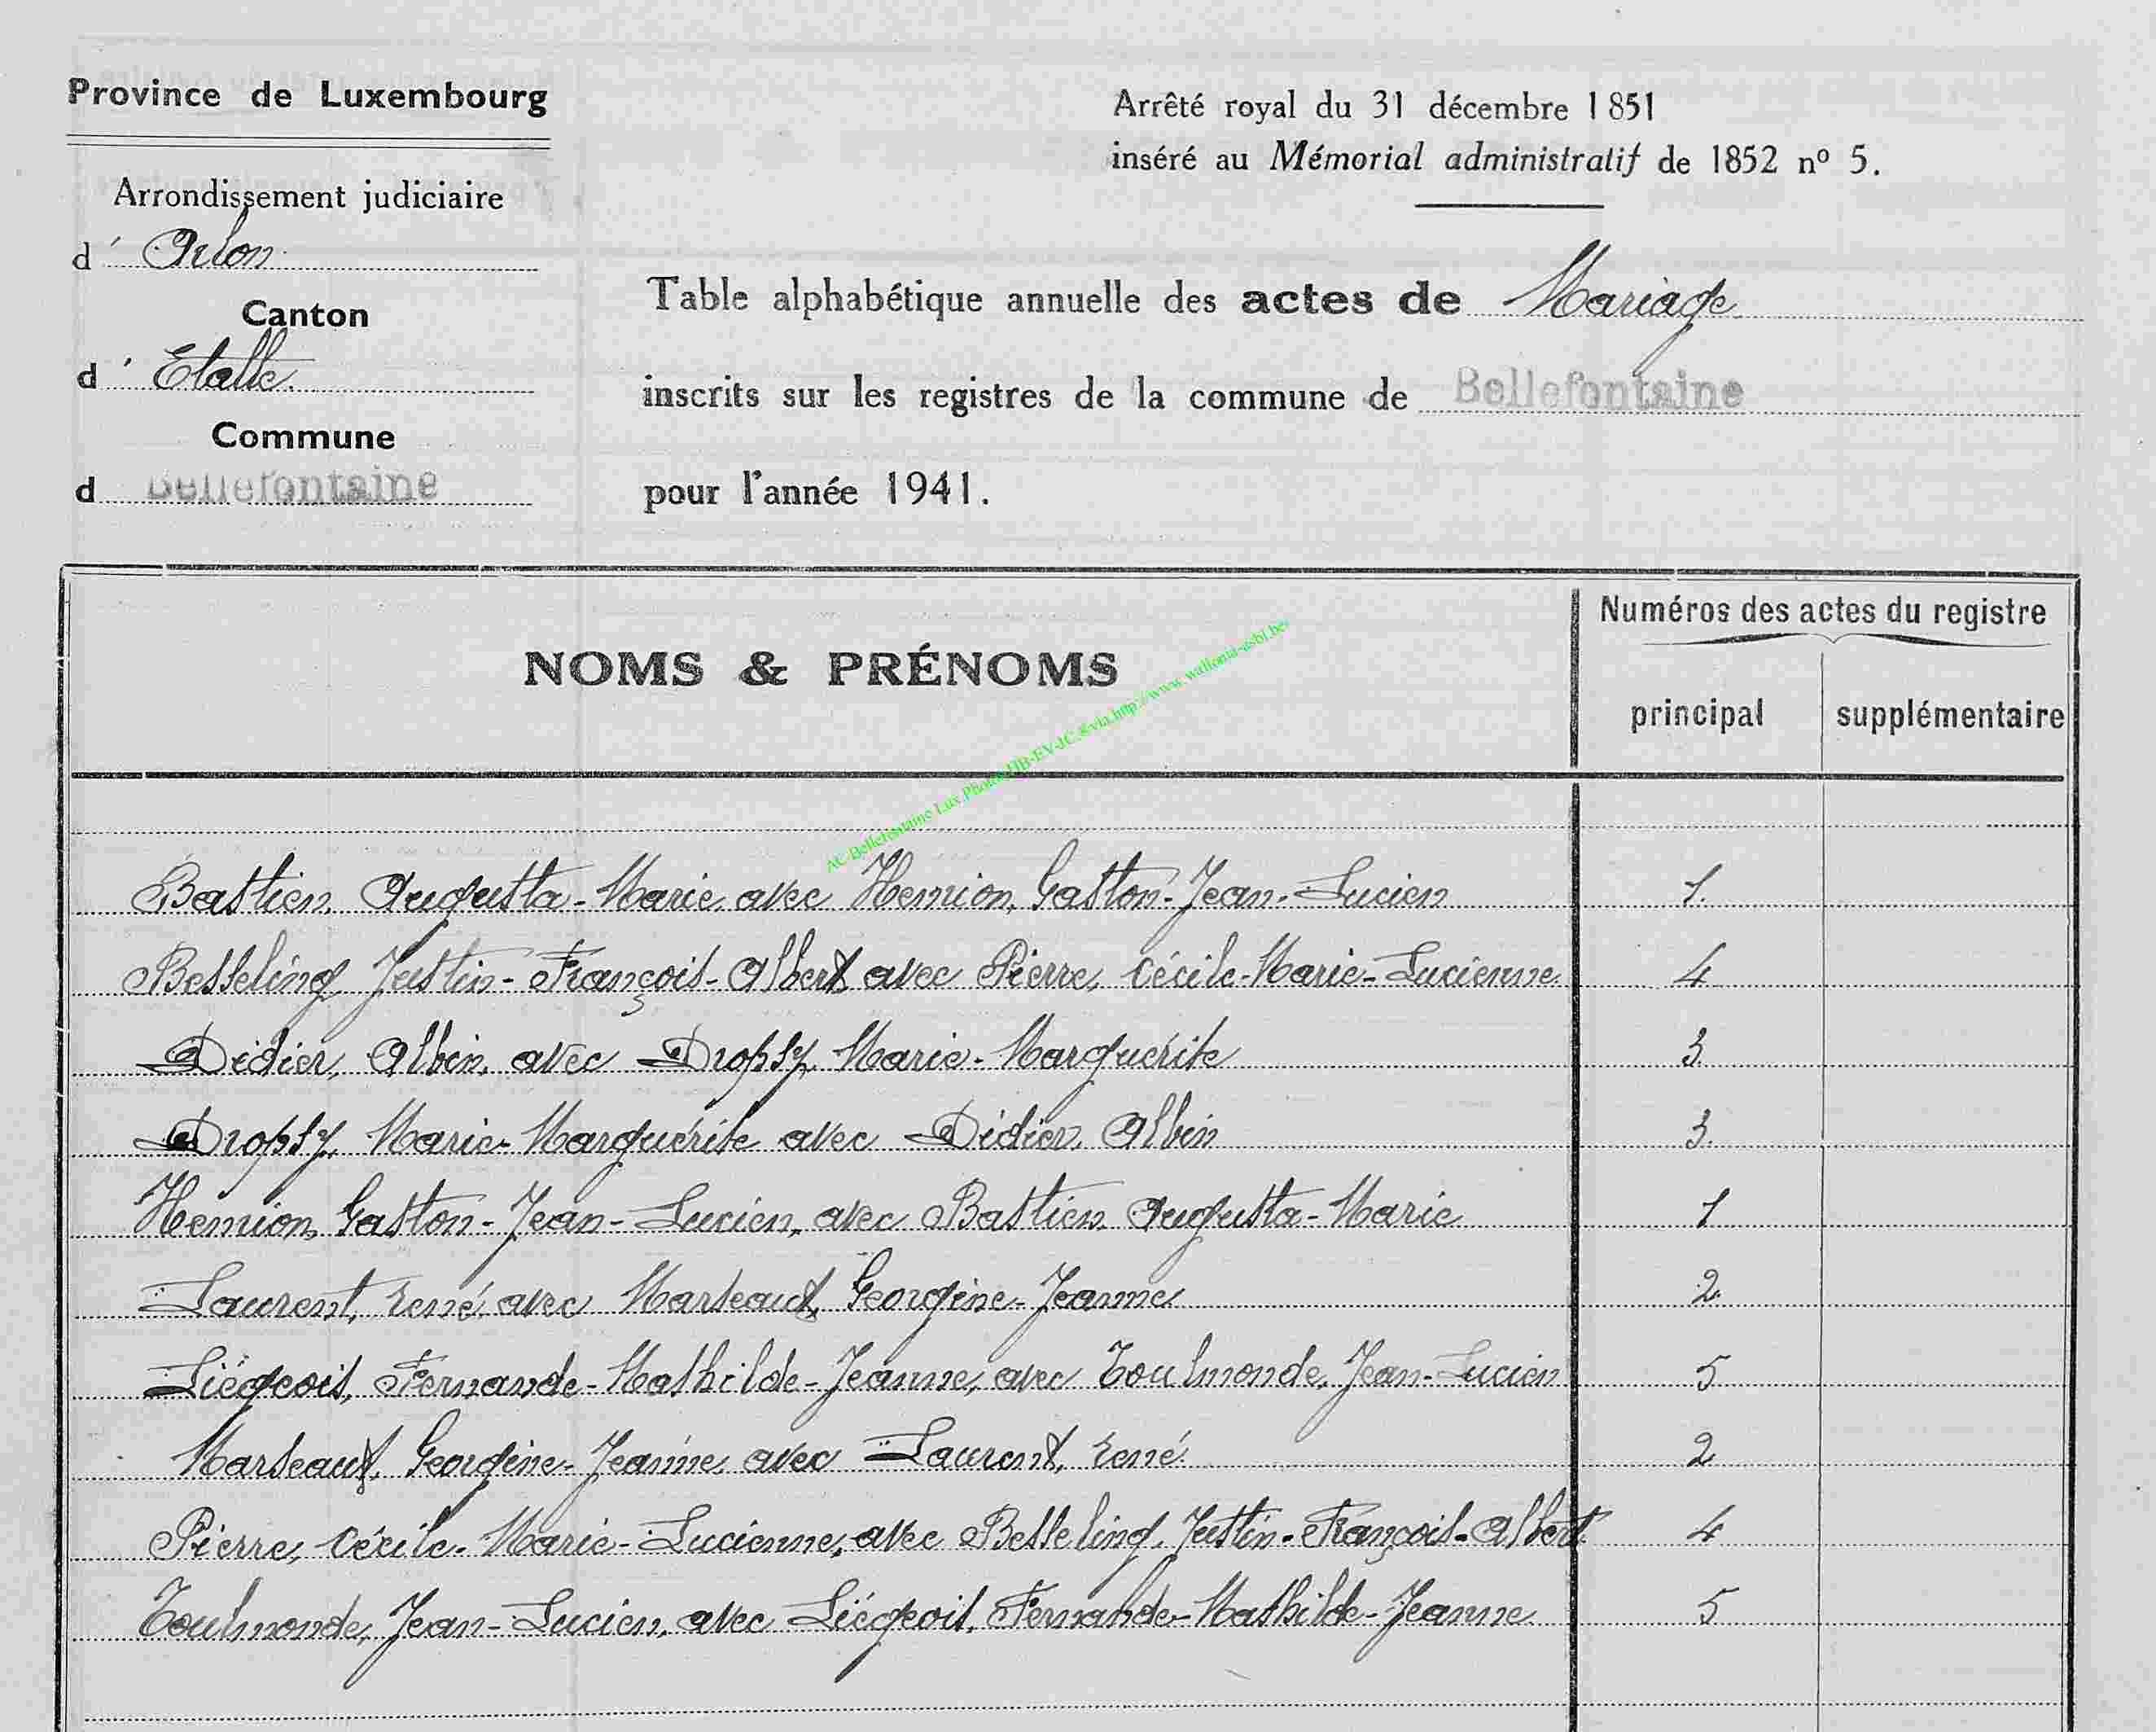 Province de Luxembourg
Arrêté royal du 31 décembre 1851
inséré au Mémorial administratif de 1852 nº 5.
Arrondissement judiciaire
d' Arlon
Canton
d' Etalle
Commune
d Bellefontaine
Table alphabétique annuelle des actes de Mariage
inscrits sur les registres de la commune de Bellefontaine
pour l'année 1941.
NOMS & PRÉNOMS
Numéros des actes du registre
principal supplémentaire
AC Bellefontaine Lux.Photos HB-EV-JC @via http://www.wallonia-asbl.be/
Bastien, Augusta-Marie, avec Hemion, Gaston-Jean-Lucien 1.
Besseling Justin-François-Albert, avec Pierre, Cécile-Marie-Lucienne 4
Didier, Albin, avec Dropsy, Marie-Marguérite 3.
Dropsy, Marie-Marguérite avec Didier, Albin 3.
Hemion, Gaston-Jean-Lucien, avec Bastien Augusta-Marie 1
Laurent, René, avec Marteaux, Georgine-Jeanne 2.
Liégeois, Fernande-Mathilde-Jeanne, avec Toulmonde, Jean-Lucien 5
Marteaux, Georgine-Jeanne, avec Laurent, René. 2
Pierre, Cécile-Marie-Lucienne, avec Besseling, Justin-François-Albert 4
Toulmonde, Jean-Lucien, avec Liégeois, Fernande-Mathilde-Jeanne. 5